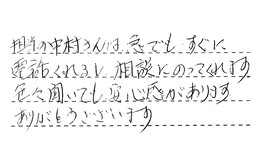 担当の中村さんは、急でも すぐに
電話くれるし 相談にのってくれます
色々聞いても 安心感があります
ありがとうございます